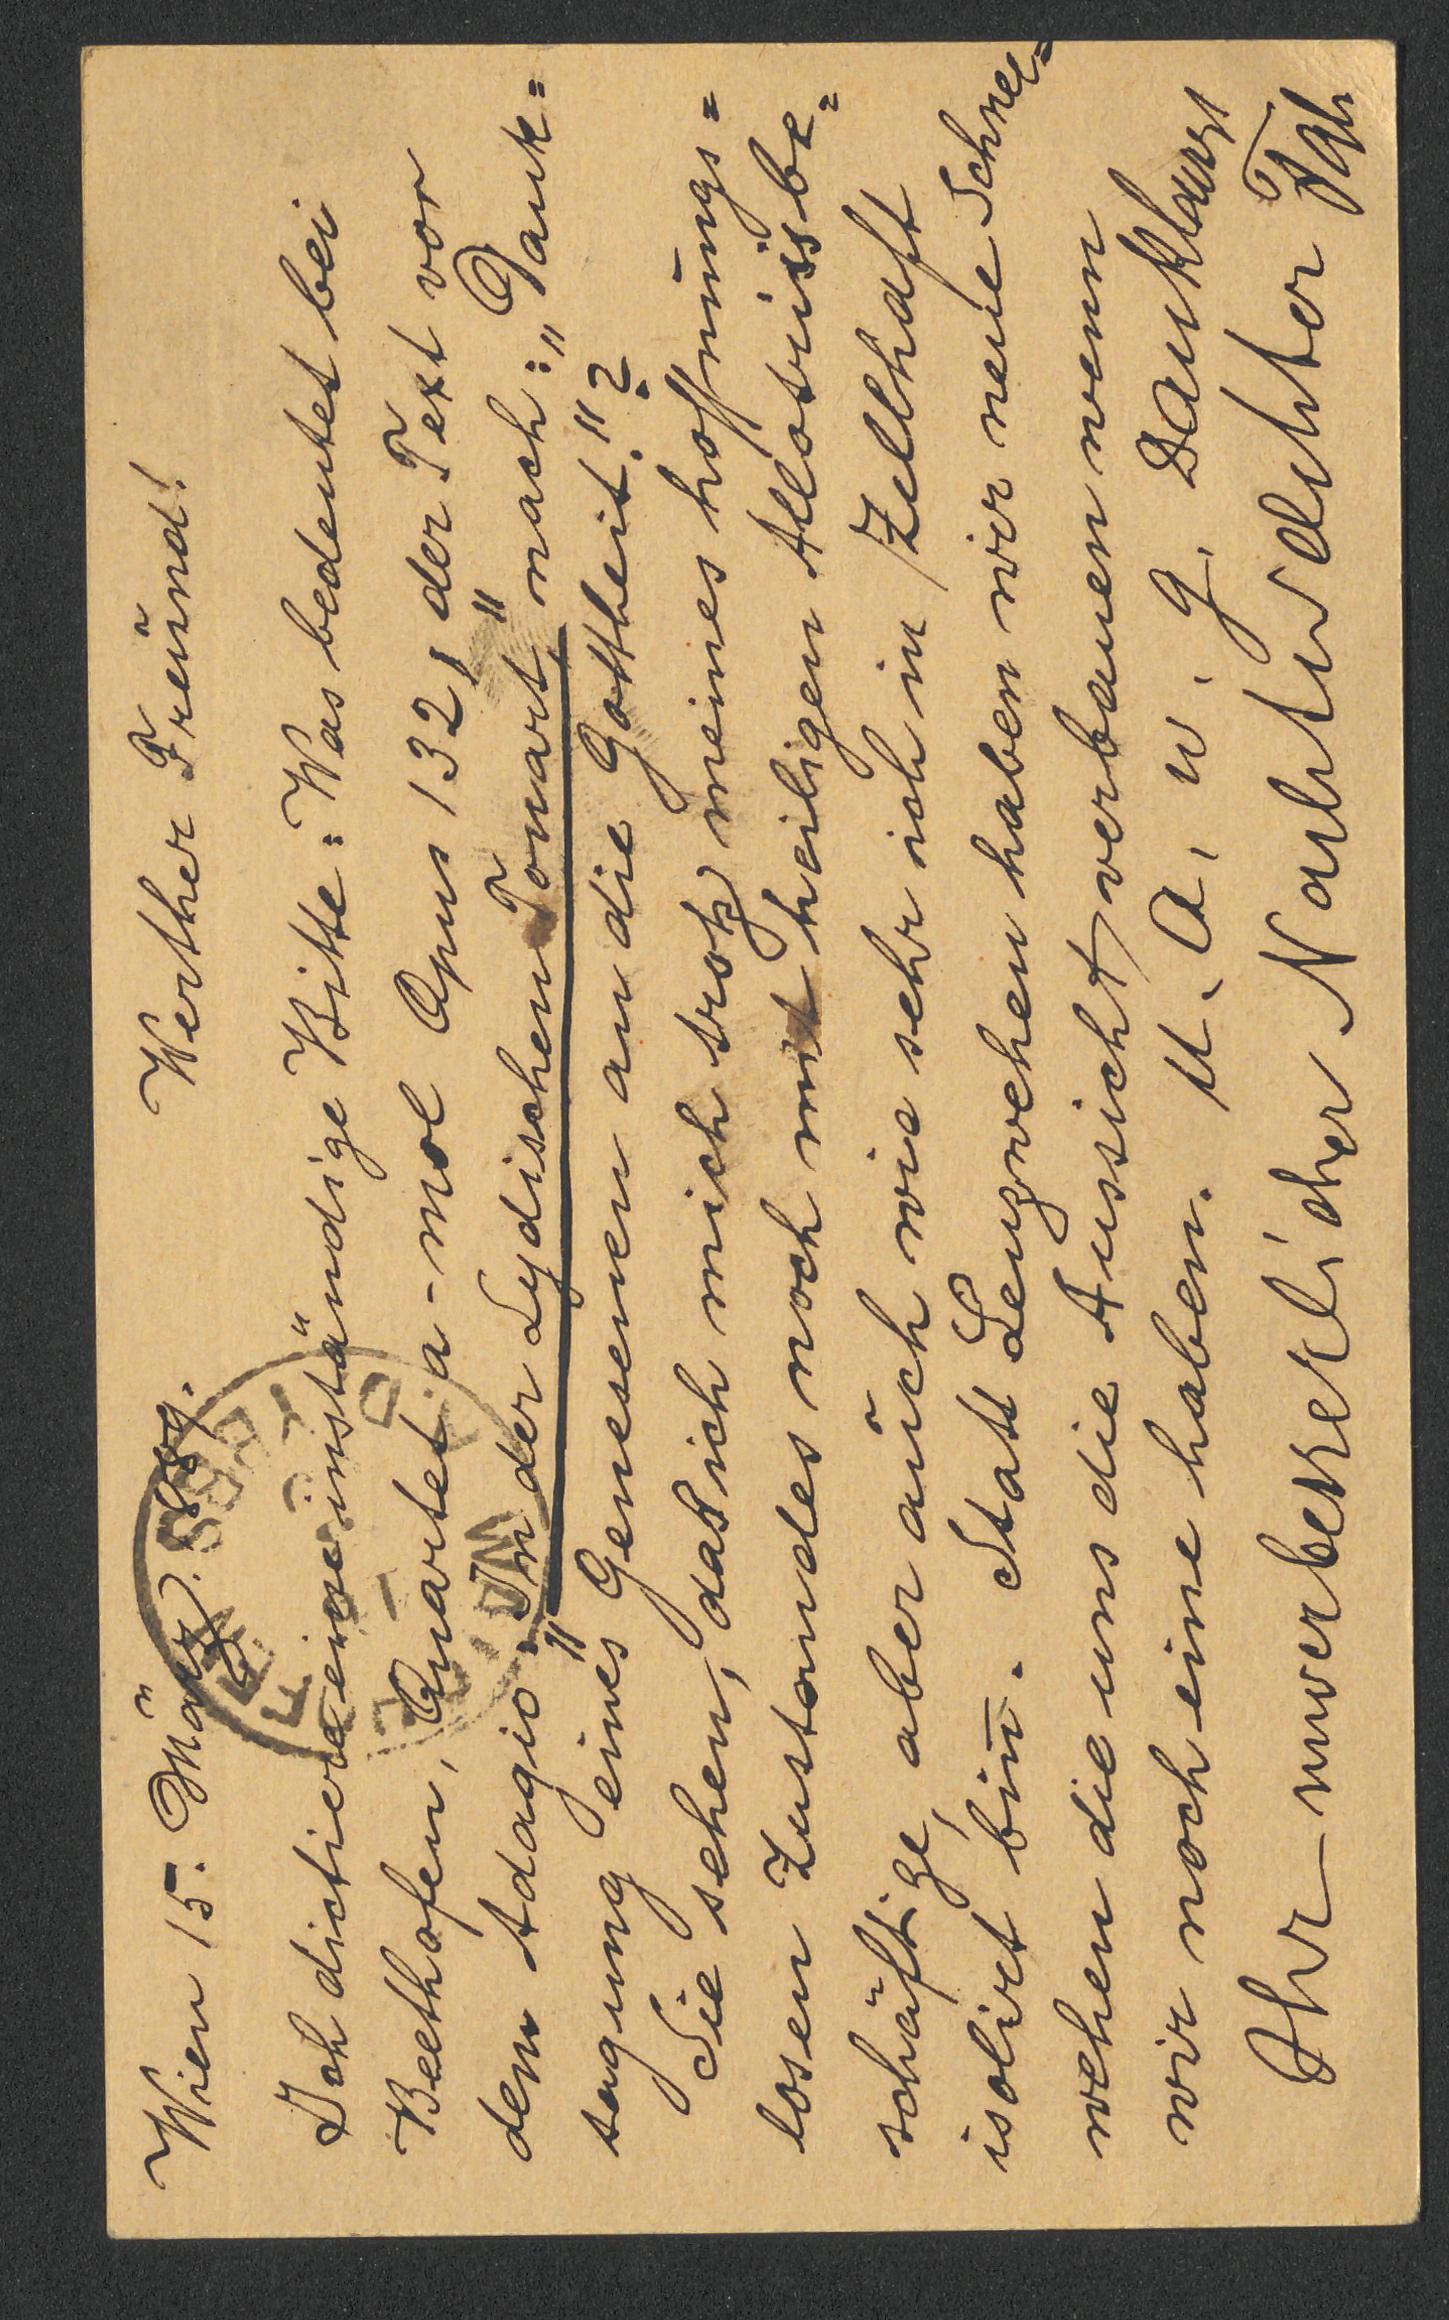 Wien 15. März 889.
Werther Freund!
Ich dictiere eine inständige Bitte: Was bedeutet bei
Beethofen, Quartet a-mol Opus 132, der Text vor
dem Adagio: „In der Lydischen Tonart," nach: „Dank=
sagung eines Genesenen an die Gottheit."?
Sie sehen, daß ich mich trotz meines hoffnungs=
losen Zustandes noch mit heiligen Allotriis be=
schäftige, aber auch wie sehr ich in Zellhaft
isolirt bin. Statt Lenzwehen haben wir neue Schnee=
wehen die uns die Aussicht verbauen wenn
wir noch eine haben. M. A. w. g. Dankbarst
Ihr unverbesserlicher Nachtwächter